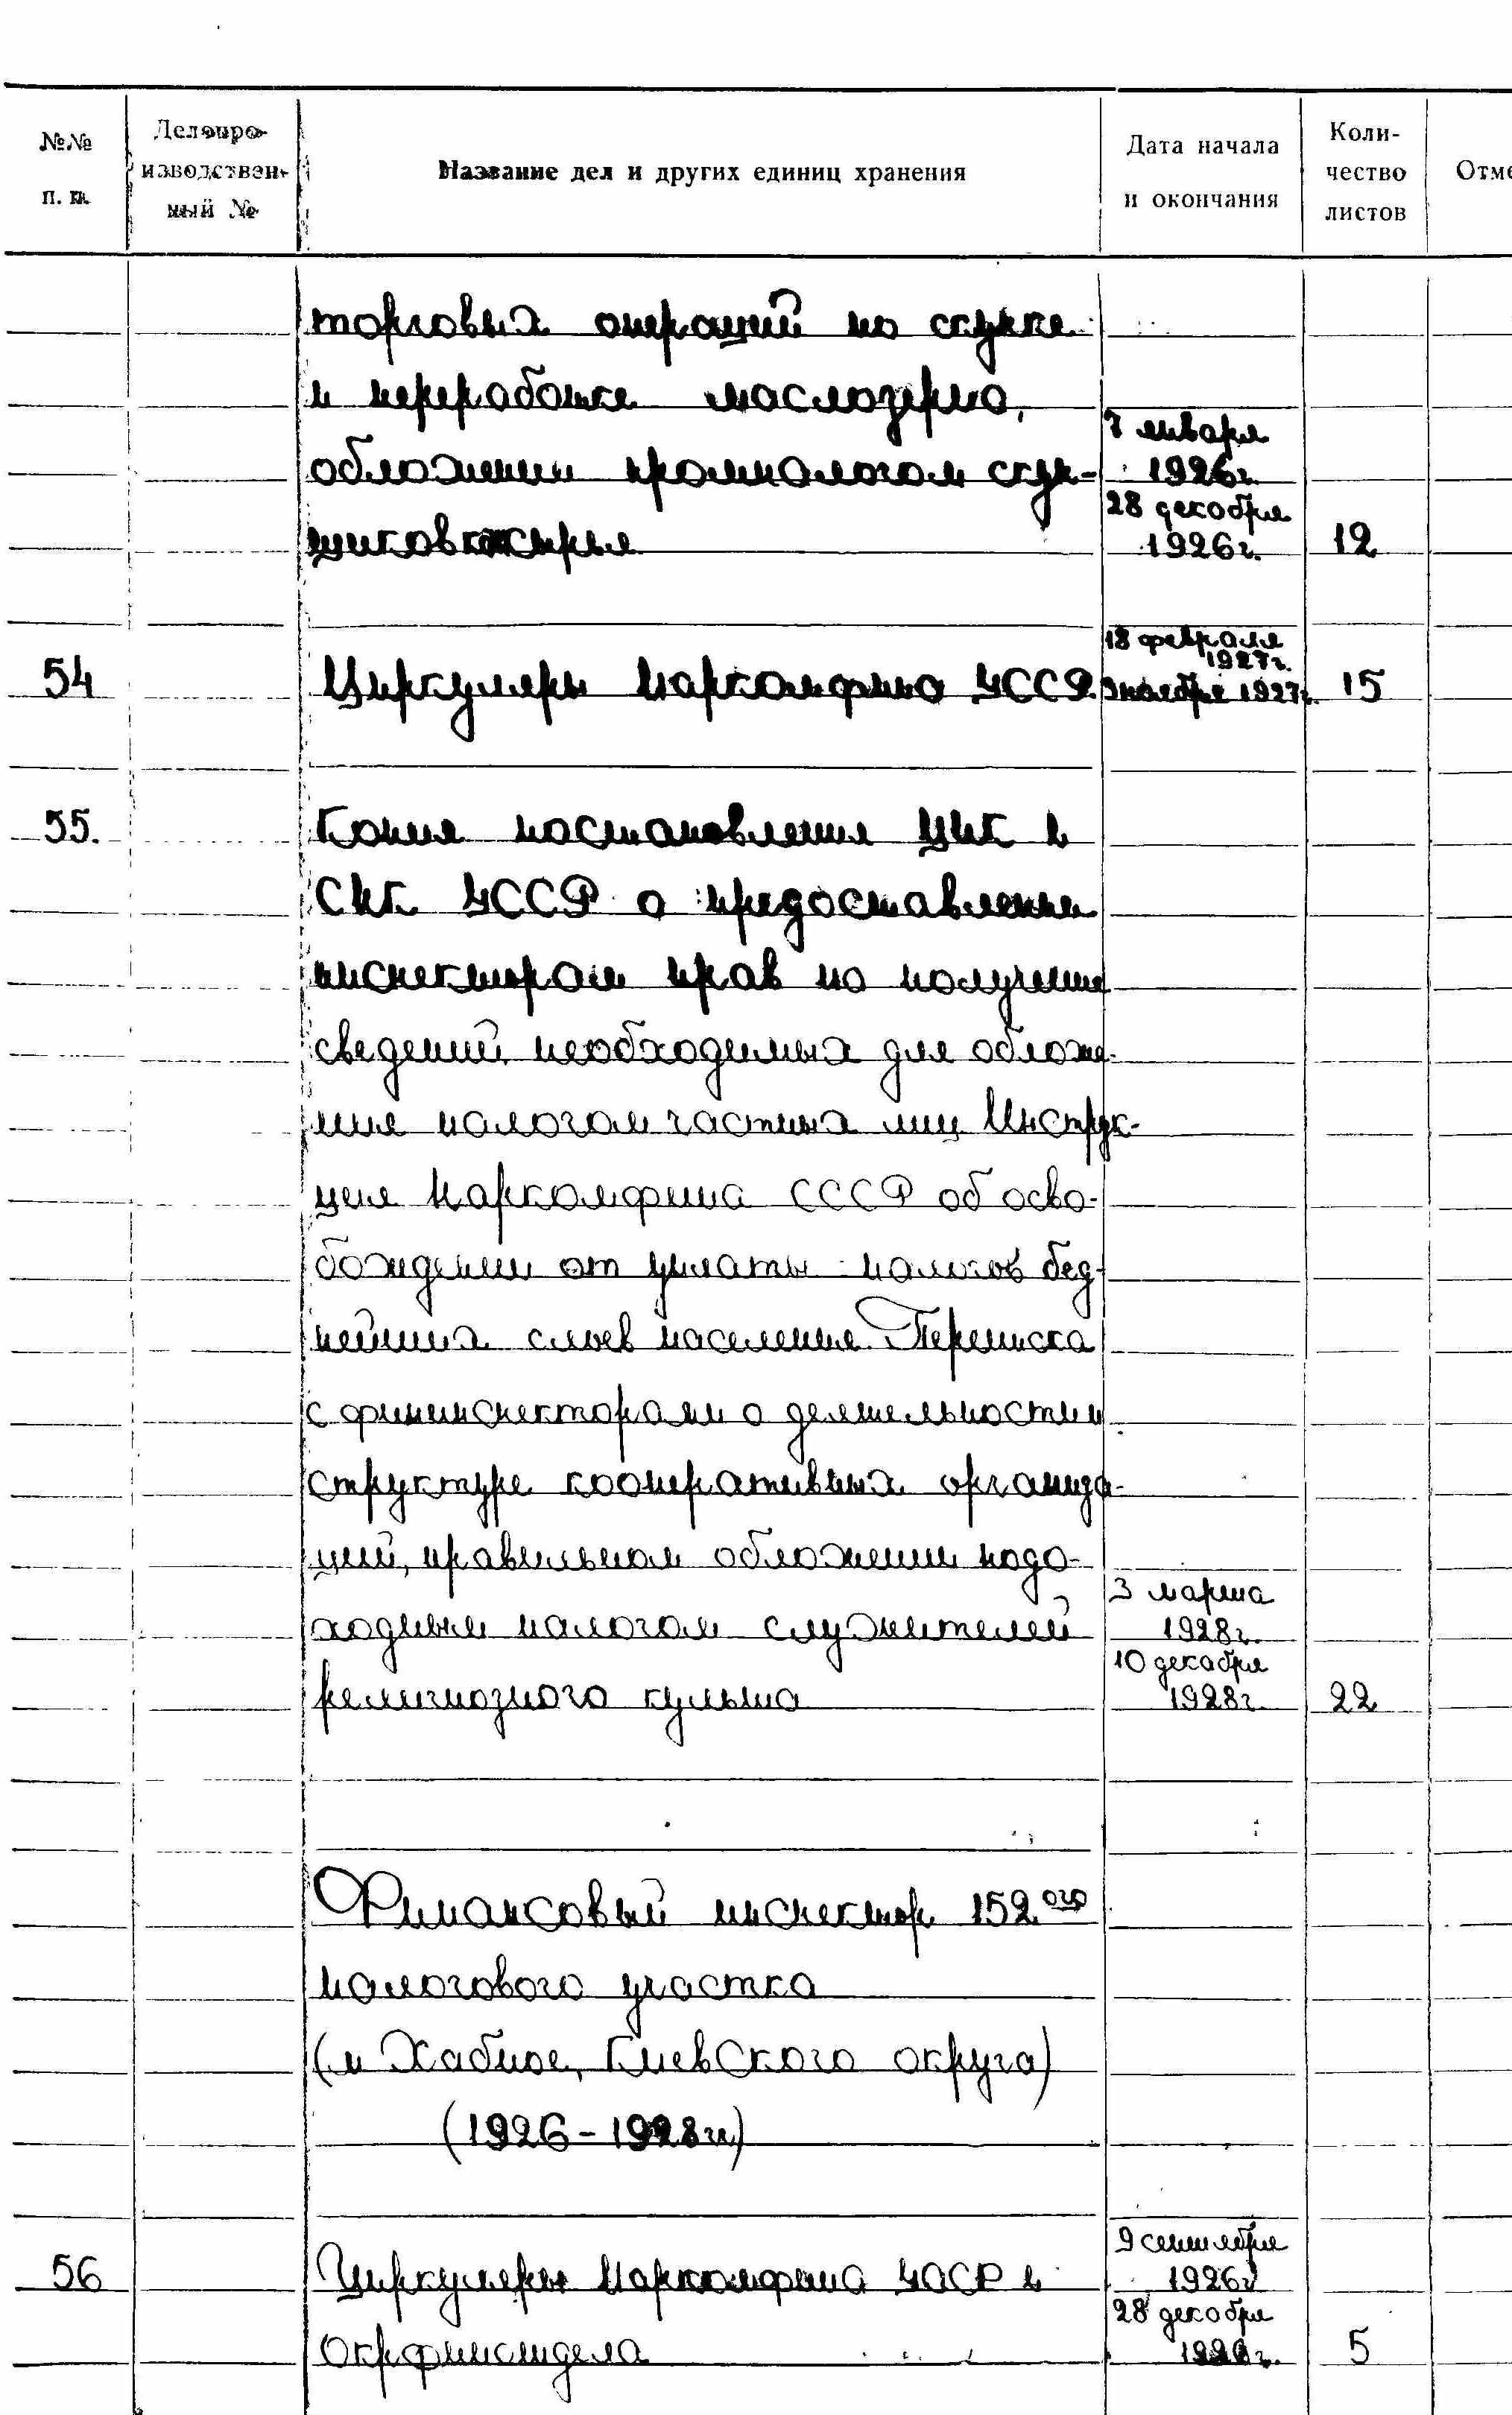 №№ п. п.
Делопро-
изводствен-
ный №
Название дел и других единиц хранения
Дата начала
и окончания
Коли-
чество
листов
Отме
торговых операций по скупке
и переработке маслозерна,
7 января
обложении промналогом скуп-
1926г.
28 декабря
щиков сырья
1926г.
12
18 февраля
1927г.
54
Циркуляры Наркомфина УССР.
3 ноября 1927г.
15
55.
Копия постановления ЦИК и
СНК УССР о предоставлении
инспекторам прав на получение
сведений, необходимых для обложе-
ния налогом частных лиц Инструк-
ция Наркомфина СССР об осво-
бождении от уплаты налогов бед-
нейших слоев населения. Переписка
с фининспекторами о деятельности и
структуре кооперативных организа-
ций, правильном обложении подо-
3 марта
ходным налогом служителей
1928г.
10 декабря
религиозного культа
1928г.
22
Финансовый инспектор 152ого
налогового участка
(м Хабное, Киевского округа)
(1926-1928гг)
9 сентября
56
Циркуляры Наркомфина УССР и
1926г
28 декабря
Окрфинотдела
1926г.
5